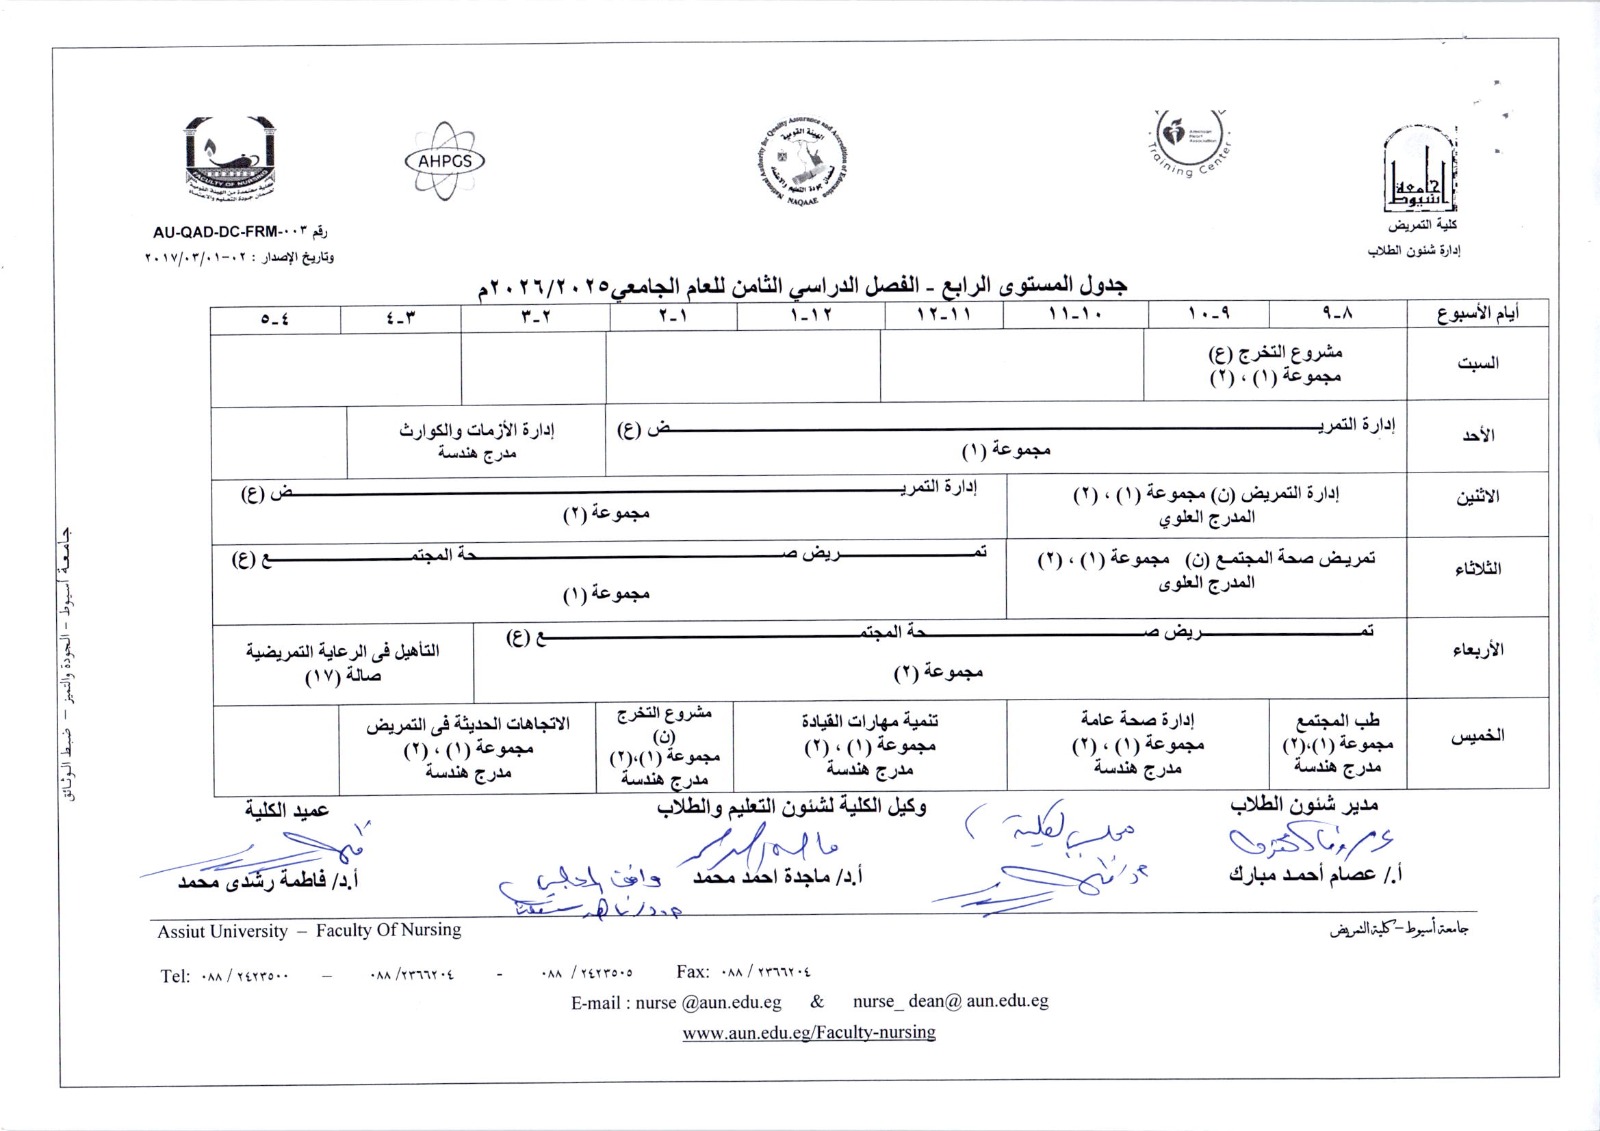 FACULTY OF NURSING
كلية معتمدة من الهيئة القومية
لضمان جودة التعليم والاعتماد
AHPGS
National Authority for Quality Assurance and Accreditation of Education
الهيئة القومية
لضمان جودة التعليم والاعتماد
NAQAAE
American
Heart
Association
Training Center
جامعة
أسيوط
كلية التمريض
إدارة شئون الطلاب
رقم AU-QAD-DC-FRM-٠٠٣
وتاريخ الإصدار : ٠٢-٢٠١٧/٠٣/٠١
جدول المستوى الرابع - الفصل الدراسي الثامن للعام الجامعي٢٠٢٦/٢٠٢٥م
أيام الأسبوع ٨-٩ ٩-١٠ ١٠-١١ ١١-١٢ ١٢-١ ١-٢ ٢-٣ ٣-٤ ٤-٥
السبت
مشروع التخرج (ع)
مجموعة (١) ، (٢)
الأحد
إدارة التمريـــــض (ع)
مجموعة (١)
إدارة الأزمات والكوارث
مدرج هندسة
الاثنين
إدارة التمريض (ن) مجموعة (١) ، (٢)
المدرج العلوي
إدارة التمريـــــض (ع)
مجموعة (٢)
الثلاثاء
تمريض صحة المجتمع (ن) مجموعة (١) ، (٢)
المدرج العلوى
تمـــــريض صـــــحة المجتمـــــع (ع)
مجموعة (١)
الأربعاء
تمـــــريض صـــــحة المجتمـــــع (ع)
مجموعة (٢)
التأهيل فى الرعاية التمريضية
صالة (١٧)
الخميس
طب المجتمع
مجموعة (١)،(٢)
مدرج هندسة
إدارة صحة عامة
مجموعة (١) ، (٢)
مدرج هندسة
تنمية مهارات القيادة
مجموعة (١) ، (٢)
مدرج هندسة
مشروع التخرج
(ن)
مجموعة (١)،(٢)
مدرج هندسة
الاتجاهات الحديثة فى التمريض
مجموعة (١) ، (٢)
مدرج هندسة
مدير شئون الطلاب
أ./ عصام أحمد مبارك
وكيل الكلية لشئون التعليم والطلاب
أ.د/ ماجدة احمد محمد
عميد الكلية
أ.د/ فاطمة رشدى محمد
مجلس الكلية
وافق المجلس
جامعة أسيوط – الجودة والتميز – ضبط الوثائق
Assiut University – Faculty Of Nursing
جامعة أسيوط–كلية التمريض
Tel: ٠٨٨ / ٢٤٢٣٥٠٠ – ٠٨٨ /٢٣٦٦٢٠٤ - ٠٨٨ / ٢٤٢٣٥٠٥ Fax: ٠٨٨ / ٢٣٦٦٢٠٤
E-mail : nurse @aun.edu.eg & nurse_ dean@ aun.edu.eg
www.aun.edu.eg/Faculty-nursing